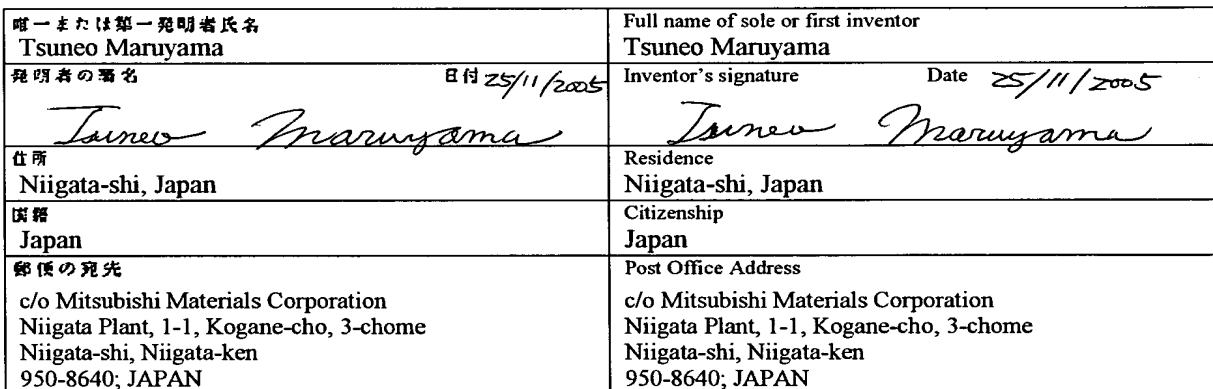 唯一または第一発明者氏名
Tsuneo Maruyama
発明者の署名 日付 25/11/2005
Tsuneo Maruyama
住所
Niigata-shi, Japan
国籍
Japan
郵便の宛先
c/o Mitsubishi Materials Corporation
Niigata Plant, 1-1, Kogane-cho, 3-chome
Niigata-shi, Niigata-ken
950-8640; JAPAN
Full name of sole or first inventor
Tsuneo Maruyama
Inventor's signature Date 25/11/2005
Tsuneo Maruyama
Residence
Niigata-shi, Japan
Citizenship
Japan
Post Office Address
c/o Mitsubishi Materials Corporation
Niigata Plant, 1-1, Kogane-cho, 3-chome
Niigata-shi, Niigata-ken
950-8640; JAPAN